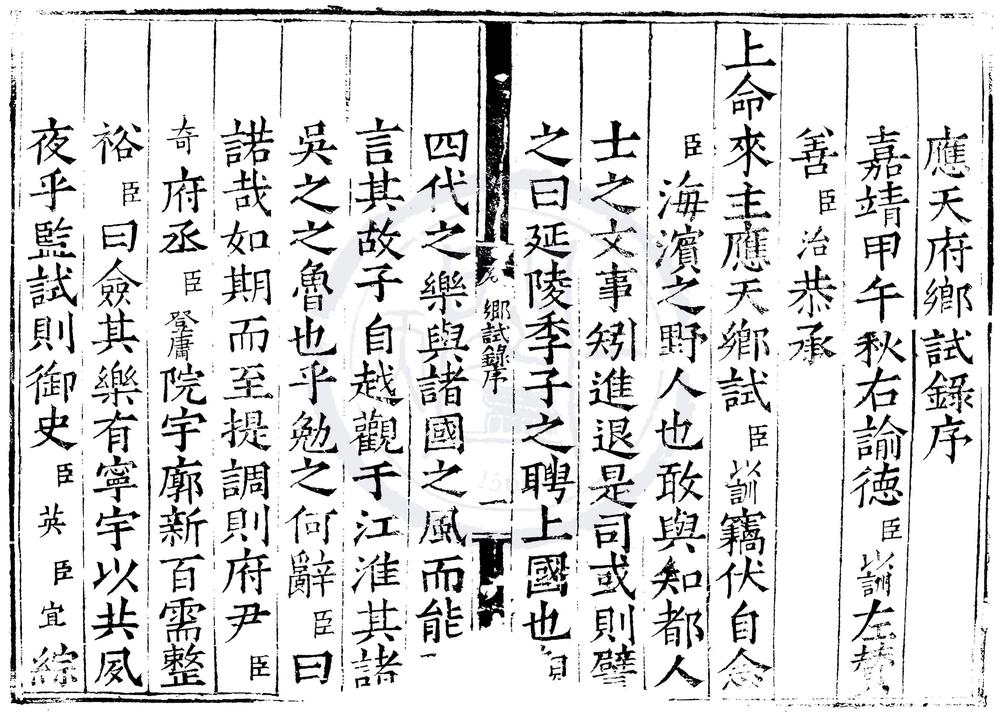 應天府鄉試錄序
嘉靖甲午秋右諭德臣以訓左贊
善臣治恭承
上命來主應天鄉試臣以訓竊伏自念
臣海濱之野人也敢與知都人
士之文事矧進退是司或則譬
之曰延陵季子之聘上國也
鄉試錄序
一
四代之樂與諸國之風而能
言其故子自越觀于江淮其諸
吳之之魯也乎勉之何辭臣曰
諾哉如期而至提調則府尹臣
奇府丞臣登庸院宇廓新百需整
裕臣曰僉其樂有寧宇以共夙
夜乎監試則御史臣英臣宜綜